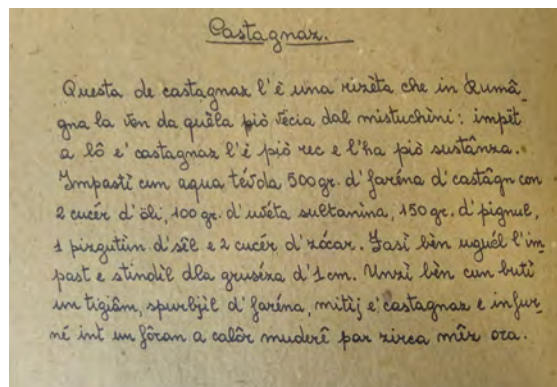 Castagnaz.
Questa de castagnaz l'è una rizèta che in Rumâ-
gna la ven da quèla piò vècia dal mistuchèni: impèt
a lô e' castagnaz l'è piò rec e l'ha piò sustânza.
Impastì cum aqua tévda 500 gr. d'faréna d'castâgn con
2 cucér d'öli, 100 gr. d'uvéta sultanina, 150 gr. d'pignul,
1 pizgutìn d'sêl e 2 cucér d'zócar. Fasì bèn uguêl l'im-
past e stindìl dla grusèza d'1 cm. Unzì bèn cun butì
un tigiâm, spurbjìl d'faréna, mitìj e' castagnaz e infur-
né int un fôran a calôr muderê par zirca mêz ora.